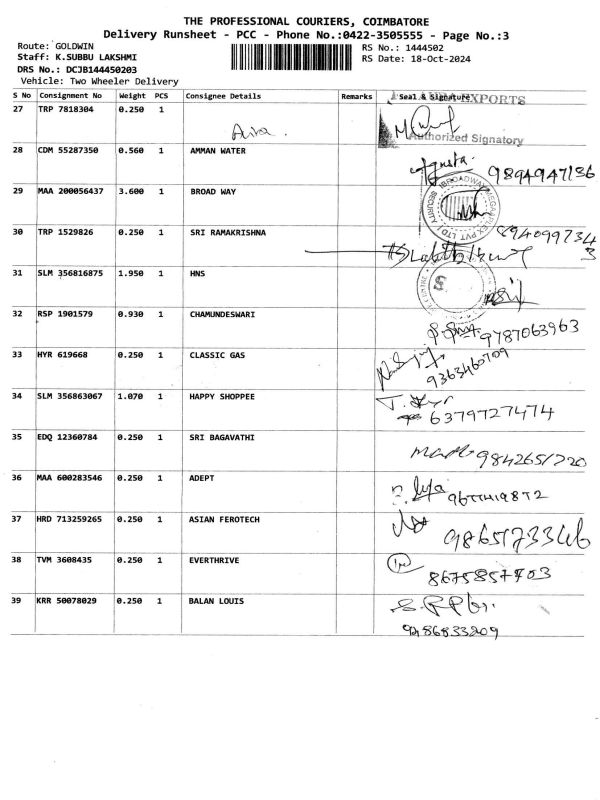 THE PROFESSIONAL COURIERS, COIMBATORE
Delivery Runsheet - PCC - Phone No.:0422-3505555 - Page No.:3
Route: GOLDWIN RS No.: 1444502
Staff: K.SUBBU LAKSHMI RS Date: 18-Oct-2024
DRS No.: DCJB144450203
Vehicle: Two Wheeler Delivery
S No Consignment No Weight PCS Consignee Details Remarks Seal & Signature
EXPORTS
27 TRP 7818304 0.250 1
Authorized Signatory
28 CDM 55287350 0.560 1 AMMAN WATER
9894947136
29 MAA 200056437 3.600 1 BROAD WAY
30 TRP 1529826 0.250 1 SRI RAMAKRISHNA
8940997343
31 SLM 356816875 1.950 1 HNS
32 RSP 1901579 0.930 1 CHAMUNDESWARI
9787063963
33 HYR 619668 0.250 1 CLASSIC GAS
9363460709
34 SLM 356863067 1.070 1 HAPPY SHOPPEE
6379727474
35 EDQ 12360784 0.250 1 SRI BAGAVATHI
9842651720
36 MAA 600283546 0.250 1 ADEPT
37 HRD 713259265 0.250 1 ASIAN FEROTECH
9865173346
38 TVM 3608435 0.250 1 EVERTHRIVE
8675857403
39 KRR 50078029 0.250 1 BALAN LOUIS
9286833209